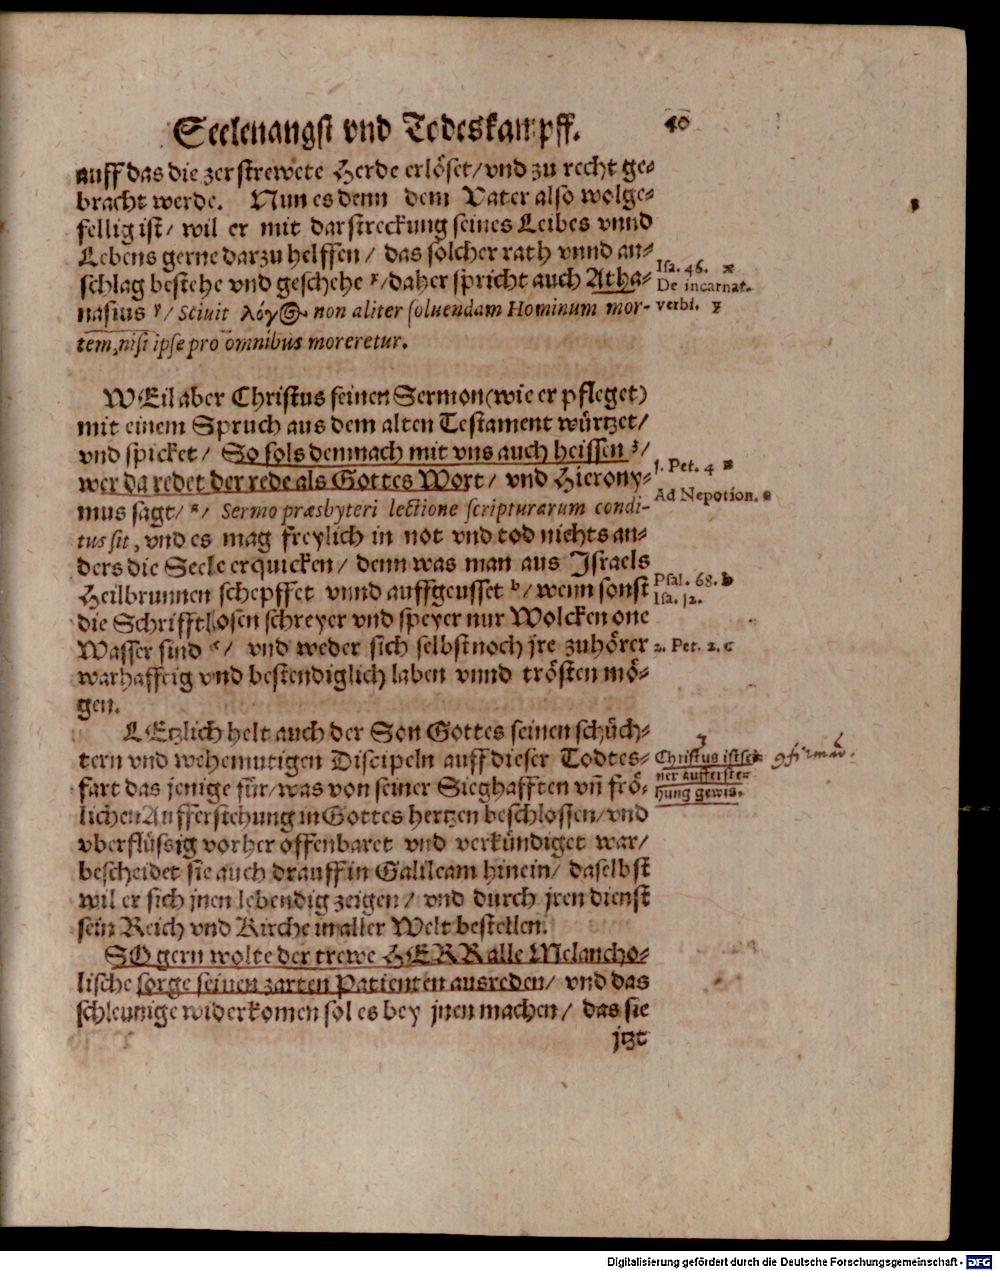 Seelenangst vnd Todeskampff. 40
auff das die zerstrewete Herde erlöset/vnd zu recht ge⸗
bracht werde. Nun es denn dem Vater also wolge⸗
fellig ist/ wil er mit darstreckung seines Leibes vnnd
Lebens gerne darzu helffen/ das solcher rath vnnd an⸗
schlag bestehe vnd geschehe x/daher spricht auch Atha⸗
nasius y/ Sciuit λόγος non aliter soluendam Hominum mor-
tem, nisi ipse pro omnibus moreretur.
Isa. 46. x
De incarnat.
verbi. y
WEil aber Christus seinen Sermon (wie er pfleget)
mit einem Spruch aus dem alten Testament würtzet/
vnd spicket/ So sols demnach mit vns auch heissen z/
wer da redet der rede als Gottes Wort/ vnd Hierony⸗
mus sagt/ a/ Sermo præsbyteri lectione scripturarum condi-
tus sit, vnd es mag freylich in not vnd tod nichts an⸗
ders die Seele erquicken/ denn was man aus Israels
Heilbrunnen schepffet vnnd auffgeusset b/ wenn sonst
die Schrifftlosen schreyer vnd speyer nur Wolcken one
Wasser sind c/ vnd weder sich selbst noch jre zuhörer
warhafftig vnd bestendiglich laben vnnd trösten mö⸗
gen.
1. Pet. 4 z
Ad Nepotion. a
Psal. 68. b
Isa. 12.
2. Pet. 2. c
LEtzlich helt auch der Son Gottes seinen schüch⸗
tern vnd wehemutigen Discipeln auff dieser Todtes⸗
fart das jenige für/was von seiner Sieghafften vn̄ frö⸗
lichen Aufferstehung in Gottes hertzen beschlossen/vnd
vberflüssig vorher offenbaret vnd verkündiget war/
bescheidet sie auch drauff in Galileam hinein/ daselbst
wil er sich jnen lebendig zeigen/ vnd durch jren dienst
sein Reich vnd Kirche in aller Welt bestellen.
7
Christus ist sei⸗
ner aufferste⸗
hung gewis.
SO gern wolte der trewe HERR alle Melancho⸗
lische sorge seinen zarten Patienten ausreden/ vnd das
schleunige widerkomen sol es bey jnen machen/ das sie
jtzt
Digitalisierung gefördert durch die Deutsche Forschungsgemeinschaft - DFG